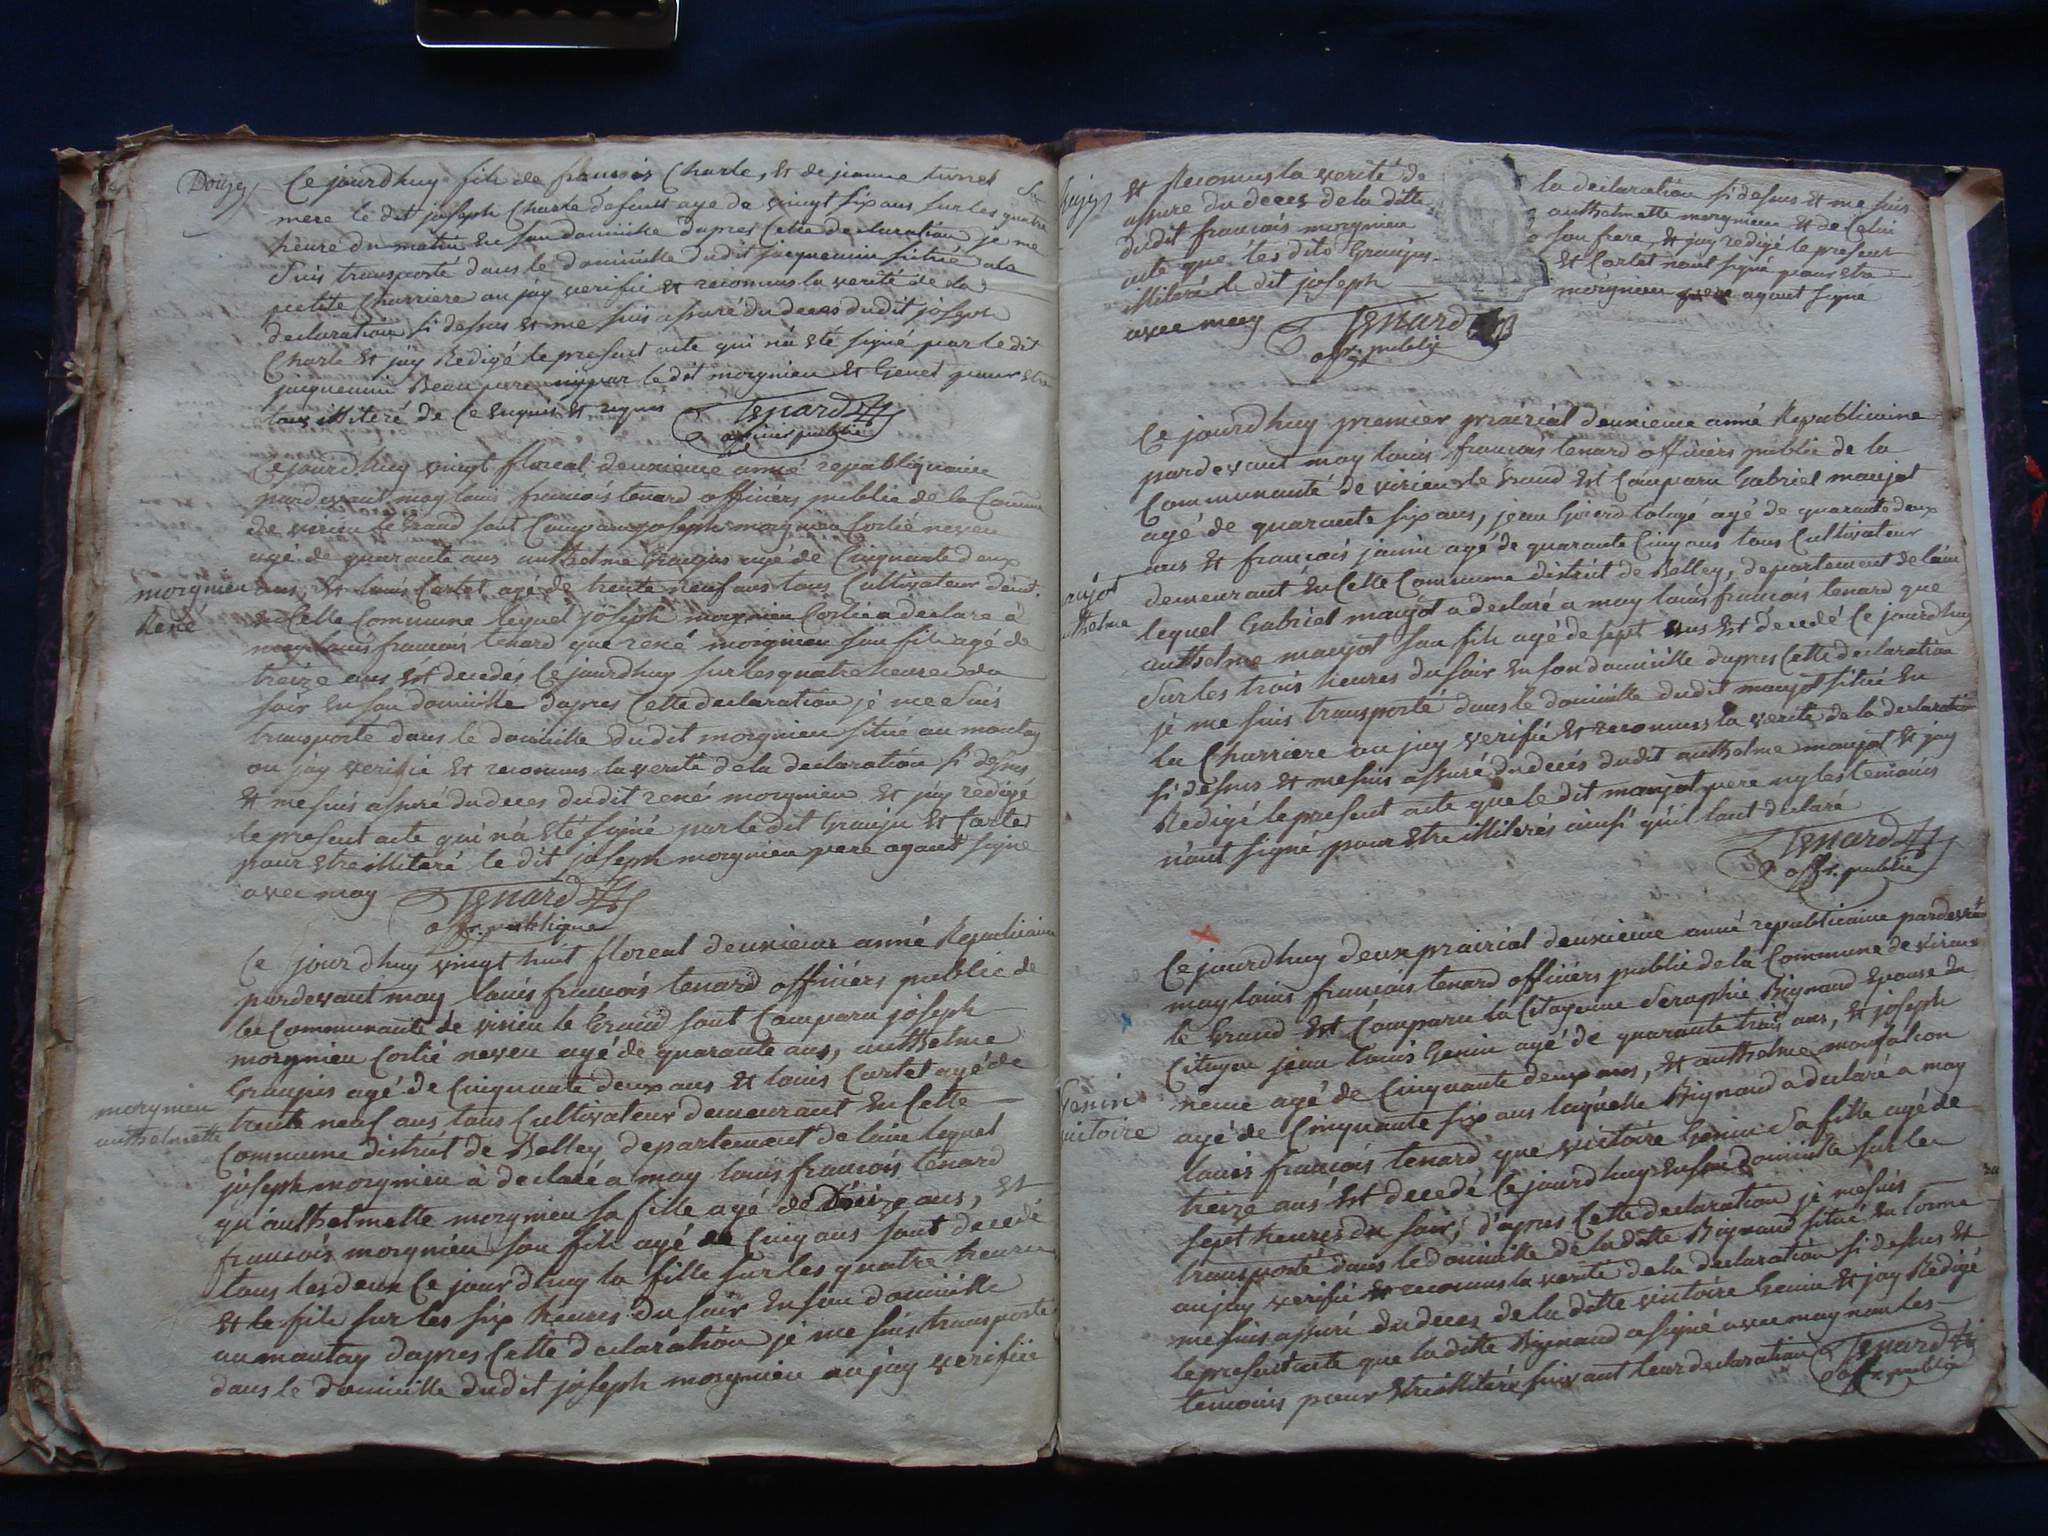 Douze
Ce jourdhuy fils de francois Charle, et de jeanne
mere le dit joseph Charle defunt age de vingt six ans sur les quatre
heure du matin en son domicille dapres Cette declaration je me
suis transporté dans le domicille dudit jacquemin situé a la
petite Charriere ou jay verifié et reconnus la verité de la
declaration si dessus et me suis assuré du deces dudit joseph
Charle et jay Redigé le present acte qui na eté signé par le dit
jacquemin Beau pere ny par le dit morgnieu et Genet pour etre
tous illiteré de Ce enquis et requis
Tenard
officier public
Ce jourdhuy vingt floreal deuxieme anné republiquaine
pardevant moy louis francois tenard officiers public de la Commune
de virieu le Grand sont Comparu joseph morgnieu Cortié neveu
agé de quarante ans anthelme Granjus agé de Cinquante deux
ans, et louis Cartet agé de trente neuf ans tous Cultivateur demt.
morgnieu
René
en Cette Commune lequel joseph morgnieu Cortié a declare à
moy louis francois tenard que rené morgnieu son fils agé de
treize ans est decedés Ce jourdhuy sur les quatre heures du
soir en son domicille dapres Cette declaration je me suis
transporté dans le domicille dudit morgnieu situé au montay
ou jay verifié et reconnus la verité de la declaration si dessus
et me suis assuré du deces dudit rené morgnieu et jay redigé
le present acte qui na eté signé par le dit Granju et Cartet
pour etre illiteré le dit joseph morgnieu pere ayant signé
avec moy Tenard
offr. publique
Ce jourdhuy vingt huit floreal deuxieme anné Republicaine
pardevant moy louis francois tenard officiers public de
la Communauté de virieu le Grand sont Comparu joseph
morgnieu Cortié neveu agé de quarante ans, anthelme
Granjus agé de Cinquante deux ans et louis Cartet agé de
morgnieu
anthelmette
trente neuf ans tous Cultivateur demeurant en Cette
Commune district de Belley, departement de lain lequel
joseph morgnieu à declaré a moy louis francois tenard
qu'anthelmette morgnieu sa fille agé de ans, et
francois morgnieu son fils agé de Cinq ans sont decedé
tous les deux Ce jourdhuy la fille sur les quatre heures
et le fils sur les six heures du soir en son domicille
au montay dapres Cette declaration je me suis transporté
dans le domicille dudit joseph morgnieu ou jay verifié
et Reconnus la verité de la declaration si dessus et me suis
assure du deces de la ditte anthelmette morgnieu et de Celui
dudit francois morgnieu son frere, et jay redigé le present
acte que les dits Granjus et Cartet nont signé pour etre
illiteré le dit joseph morgnieu pere ayant signé
avec moy Tenard
offr. public
Ce jourdhuy premier prairial deuxieme anné Republicaine
pardevant moy louis francois tenard officiers public de la
Communauté de virieu le Grand est Comparu Gabriel maujot
agé de quarante six ans, jean agé de quarante deux
ans et francois janin agé de quarante Cinq ans tous Cultivateur
demeurant en Cette Commune district de Belley, departement de lain
maujot
anthelme
lequel Gabriel maujot a declaré a moy louis francois tenard que
anthelme maujot son fils agé de sept ans est decedé Ce jourdhuy
sur les trois heures du soir en son domicille dapres Cette declaration
je me suis transporté dans le domicille dudit maujot situé en
la Charriere ou jay verifié et reconnus la verité de la declaration
si dessus et me suis assuré du decés dudit anthelme maujot et jay
Redigé le present acte que le dit maujot pere ny les temoins
n'ont signé pour etre illiterés ainsi quil lont declaré
Tenard
offr. public
Ce jourdhuy deux prairial deuxieme anné republicaine pardevant
moy louis francois tenard officiers public de la Commune de virieu
le Grand est Comparu la Citoyenne Seraphie Bignand Epouse du
Citoyen jean louis Genin agé de quarante trois ans, et joseph
agé de Cinquante deux ans, et anthelme monfalcon
Genin
victoire
agé de Cinquante six ans laquelle Bignand a declaré a moy
louis francois tenard que victoire Genin sa fille agé de
treize ans est decedé Ce jourdhuy en son domicille sur les
sept heures du soir, d'apres Cette declaration je me suis
transporté dans le domicille de la ditte Bignand situé en
ou jay verifié et reconnus la verité de la declaration si dessus et
me suis assuré du deces de la ditte victoire Genin et jay Redigé
le present acte que la ditte Bignand a signé avec moy non les
temoins pour etre illiteré suivant leur declaration Tenard
offr. public